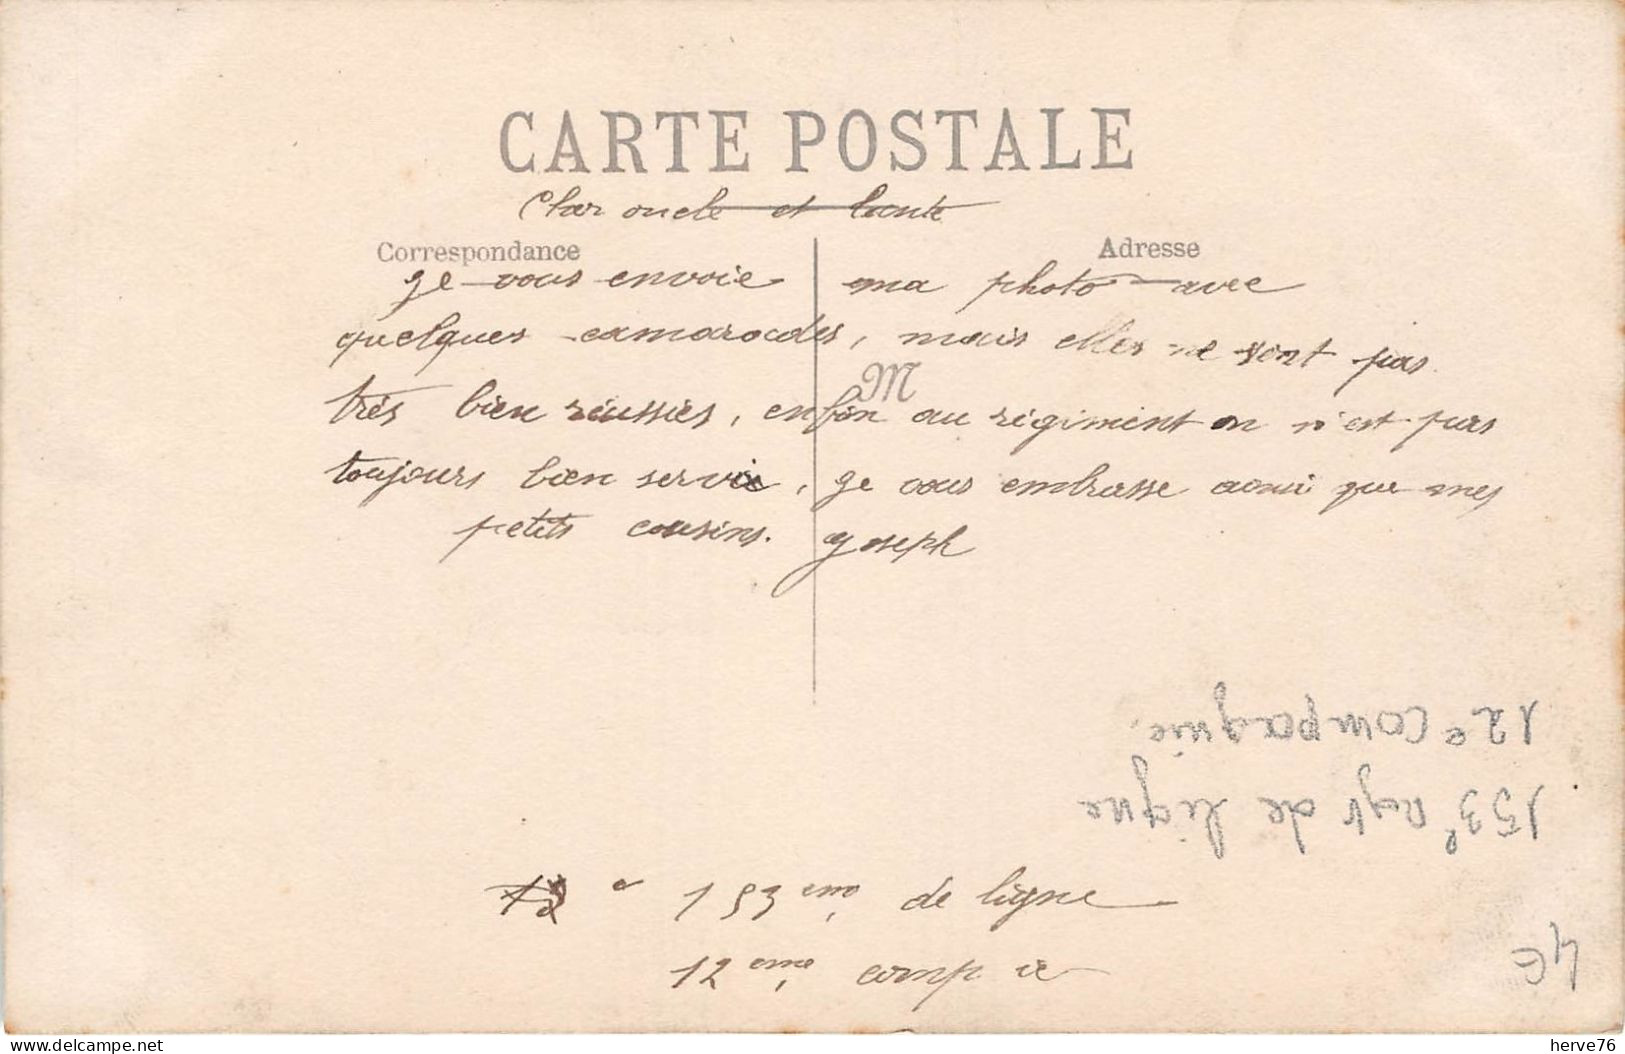 CARTE POSTALE
Cher oncle et tante
Correspondance
Adresse
Je vous envoie ma photo avec
quelques camarades, mais elles ne sont pas
M
très bien réussies, enfin au régiment on n'est pas
toujours bien servie, Je vous embrasse ainsi que mes
petits cousins. Joseph
12e compagnie.
153e Regt de ligne
153 eme de ligne
12 eme comp ie
4€
delcampe.net
herve76